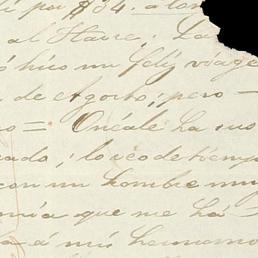 por $34. a
al Havre. La
hizo un feliz viage
de Agosto; pero —
= Onéale ha sus
; lo veo de tiempo
con un hombre muy
que me há
a mis hermano